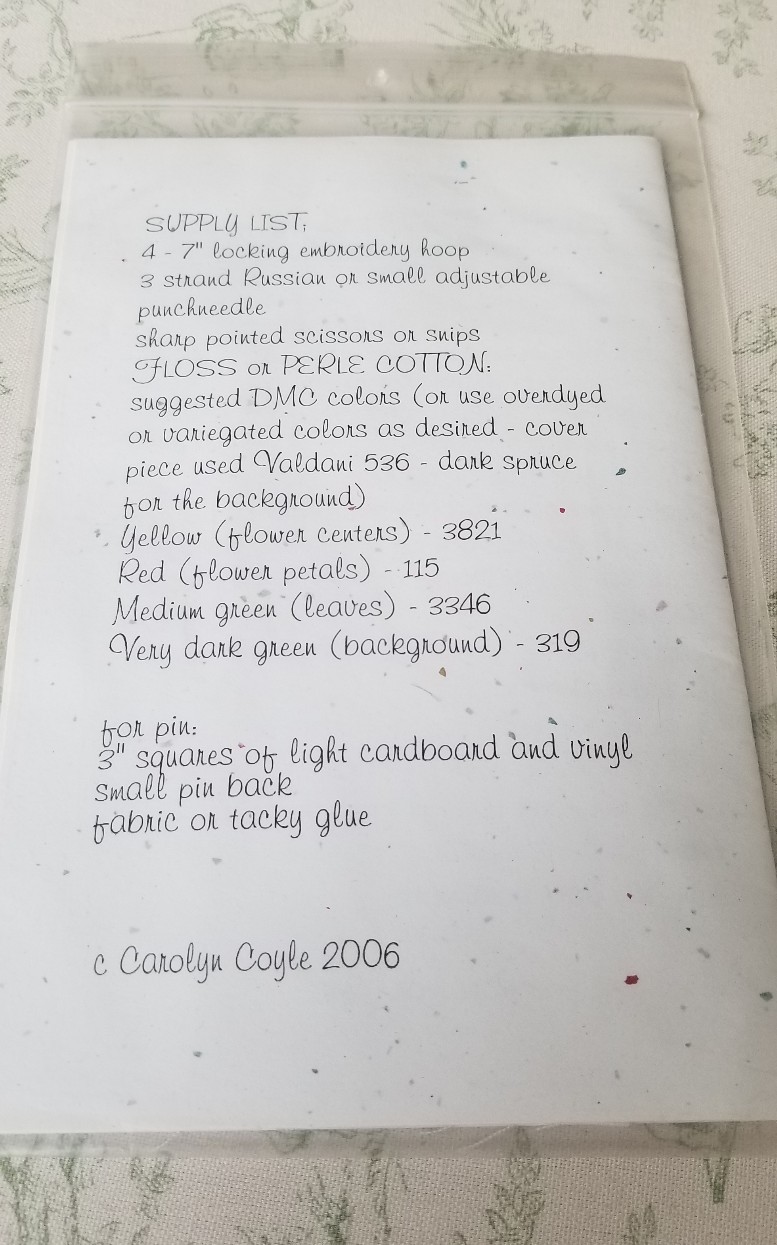 SUPPLY LIST:
4 - 7" locking embroidery hoop
3 strand Russian or small adjustable
punchneedle
sharp pointed scissors or snips
FLOSS or PERLE COTTON:
suggested DMC colors (or use overdyed
or variegated colors as desired - cover
piece used Valdani 536 - dark spruce
for the background)
Yellow (flower centers) - 3821
Red (flower petals) - 115
Medium green (leaves) - 3346
Very dark green (background) - 319
for pin:
3" squares of light cardboard and vinyl
small pin back
fabric or tacky glue
c Carolyn Coyle 2006